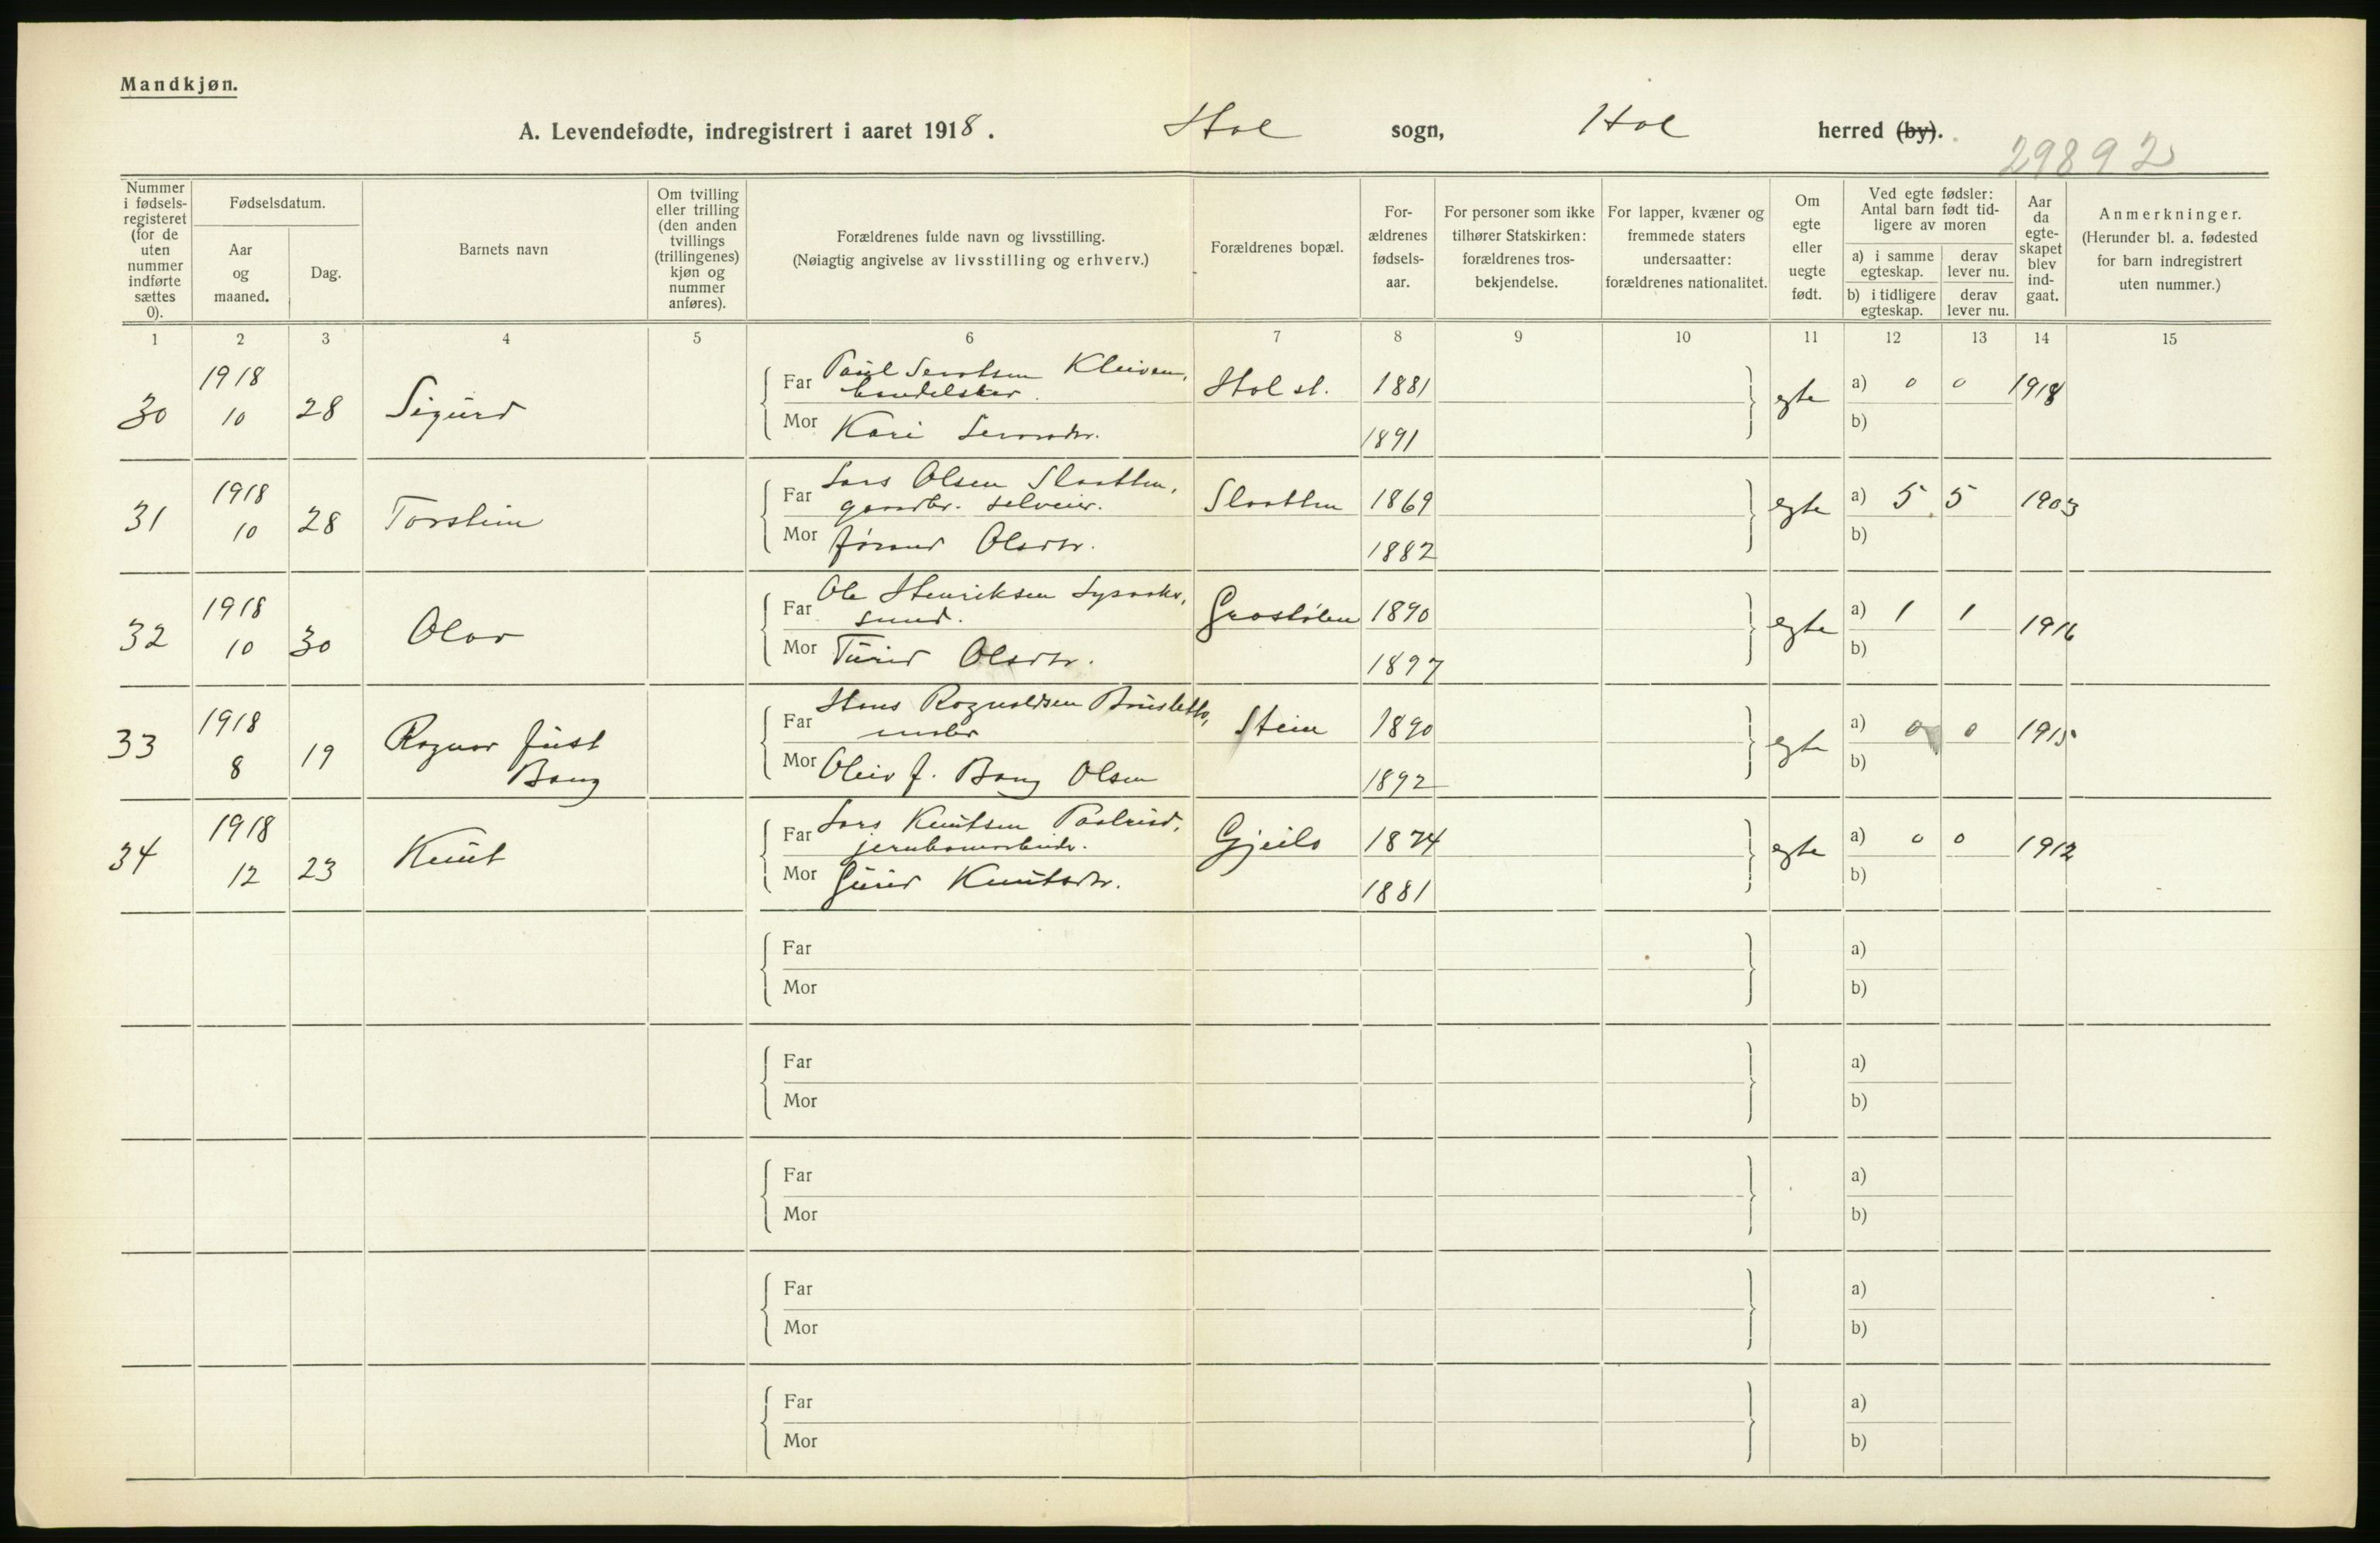 Mandkjøn.
A. Levendefødte, indregistrert i aaret 1918. Hol sogn, Hol herred (by).
29892
Nummer i fødsels-registeret (for de uten nummer indførte sættes 0).
Fødselsdatum.
Aar og maaned.
Dag.
Barnets navn
Om tvilling eller trilling (den anden tvillings (trillingenes) kjøn og nummer anføres).
Forældrenes fulde navn og livsstilling.
(Nøiagtig angivelse av livsstilling og erhverv.)
Forældrenes bopæl.
For-ældrenes fødsels-aar.
For personer som ikke tilhører Statskirken: forældrenes tros-bekjendelse.
For lapper, kvæner og fremmede staters undersaatter: forældrenes nationalitet.
Om egte eller uegte født.
Ved egte fødsler: Antal barn født tid-ligere av moren
a) i samme egteskap.
derav lever nu.
b) i tidligere egteskap.
derav lever nu.
Aar da egte-skapet blev ind-gaat.
Anmerkninger.
(Herunder bl. a. fødested for barn indregistrert uten nummer.)
1 2 3 4 5 6 7 8 9 10 11 12 13 14 15
30 1918 10 28 Sigurd
Far Paul Kleiven,
Hol st. 1881 egte a) 0 0 1918
Mor Kari
1891 b)
31 1918 10 28 Torstein
Far Lars Olsen Slaatten,
gaardbr. selveier.
Slaatten 1869 egte a) 5 5 1903
Mor Jörand Olsdtr.
1882 b)
32 1918 10 30 Olav
Far Ole Henriksen
smed.
1890 egte a) 1 1 1916
Mor Turid Olsdtr.
1897 b)
33 1918 8 19 Ragnar Just
Bang
Far Hans Ragnvaldsen Brusletto,
maler
Stein 1890 egte a) 0 0 1915
Mor Oleiv J. Bang Olsen
1892 b)
34 1918 12 23 Knut
Far Lars Knutsen
jernbanearbeider.
Gjeilo 1874 egte a) 0 0 1912
Mor Guri Knutsdtr.
1881 b)
Far a)
Mor b)
Far a)
Mor b)
Far a)
Mor b)
Far a)
Mor b)
Far a)
Mor b)